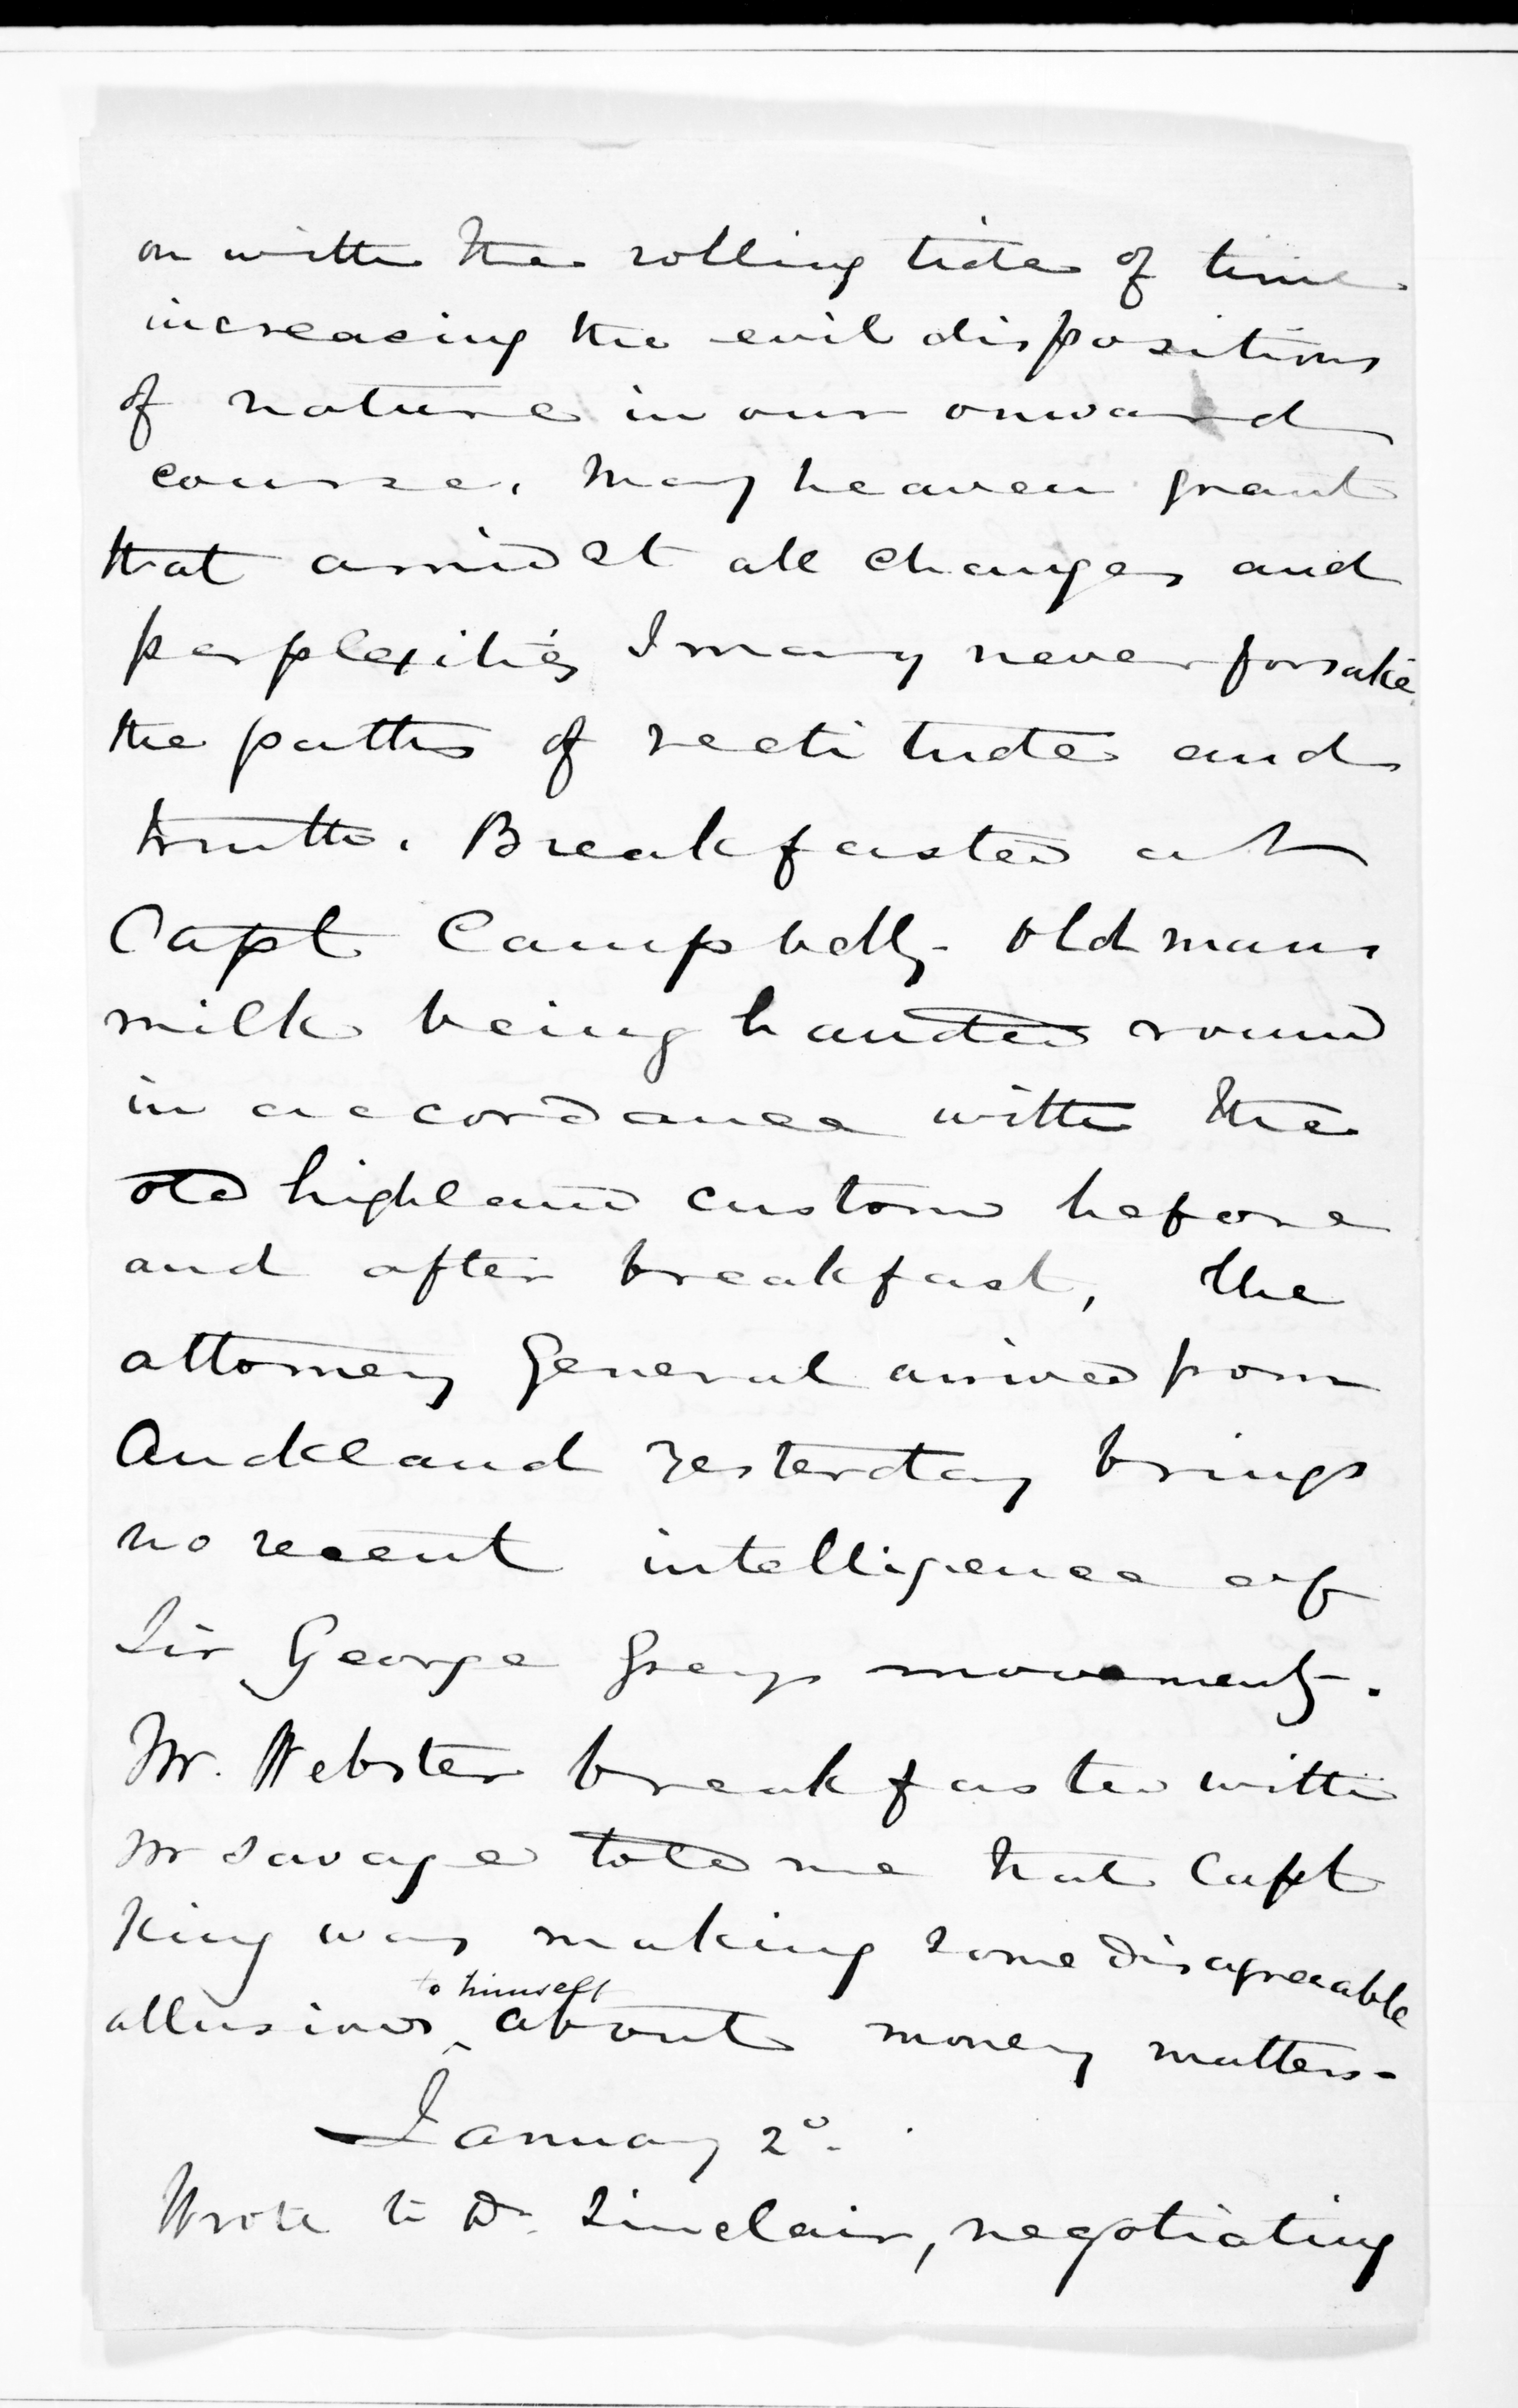 on with the rolling tide of time
increasing the evil dispositions
of nature in our onward
course. May heaven grant
that amidst all changes and
perplexities I may never forsake
the paths of rectitude and
truth. Breakfasted at
Capt Campbells - old mans
milk being handed round
in accordance with the
old highland custom before
and after breakfast, the
attorney General arrived from
Auckland yesterday brings
no recent intelligence of
Sir George Greys movements.
Mr. Webster breakfasted with
Mr Savage told me that Capt
King was making some disagreeable
to himself
allusions ^ about money matters -
January 2d.
Wrote to Dr. Sinclair, negotiating